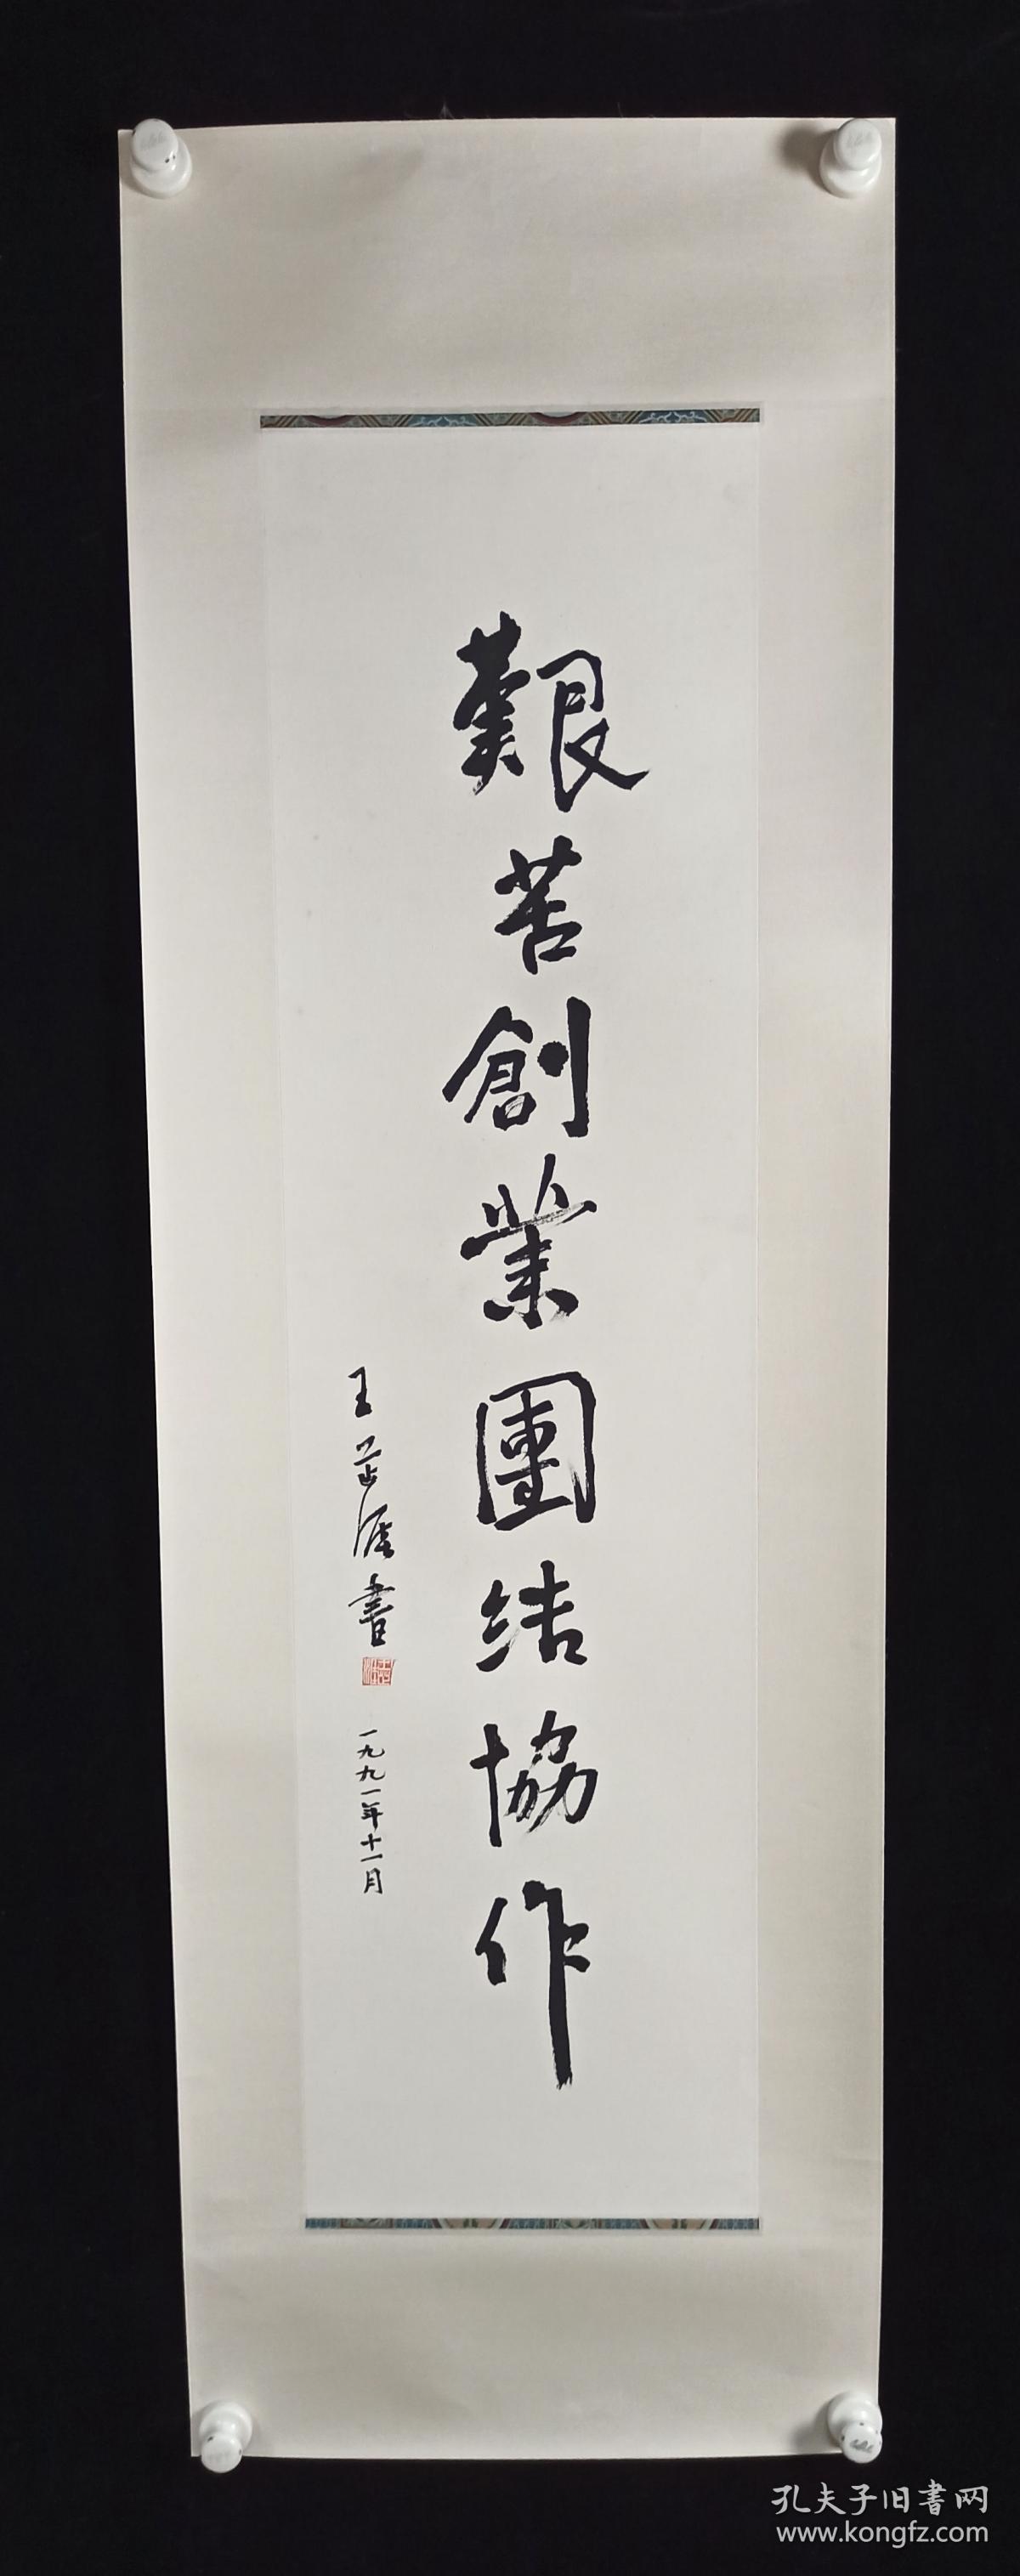 艱苦創業團结協作
王芷涯書
一九九一年十一月
孔夫子旧書网
www.kongfz.com